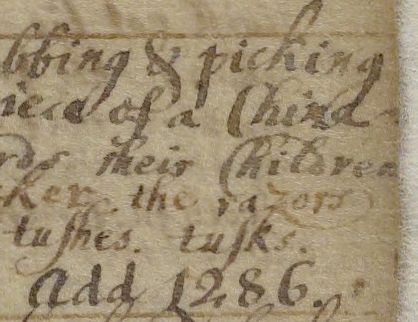 bbing & picking
iece of a China
rds their Children
ker. the razors
tushes. tusks.
add 1286.